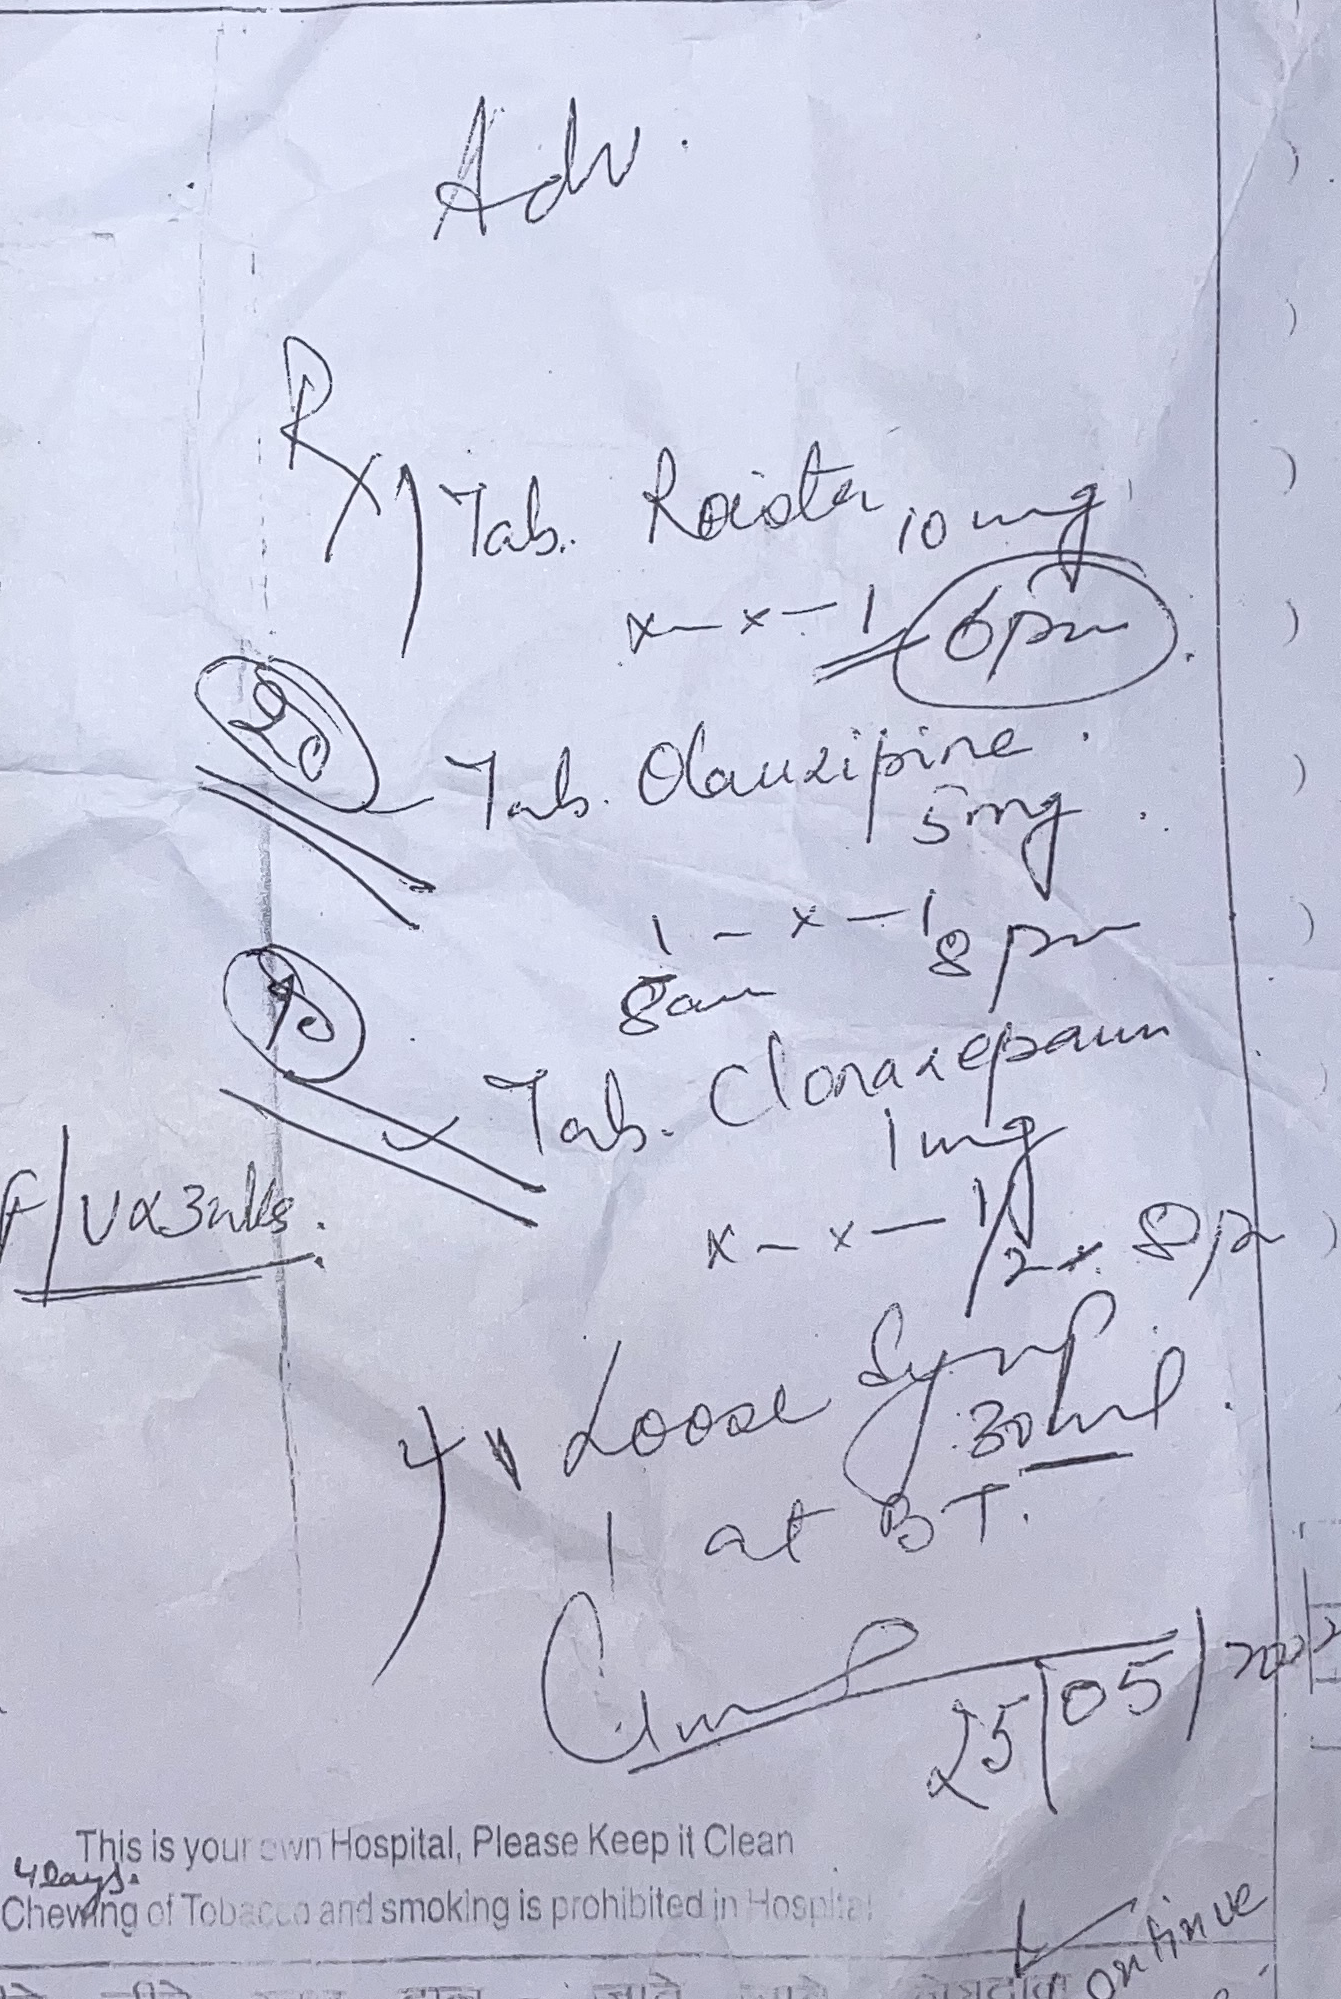 Adv.
Rx
Tab. Roister 10 mg
x - x - 1 6pm
Tab. Olanzipine
5mg
1 - x - 1
8am 8pm
Tab. Clonazepam
1mg
x - x - 1/2 8p
F/U x 3wks.
4) Loose Syrup
30ml
1 at BT.
25/05/
This is your own Hospital, Please Keep it Clean
4 Days.
Chewing of Tobacco and smoking is prohibited in Hospital
Continue